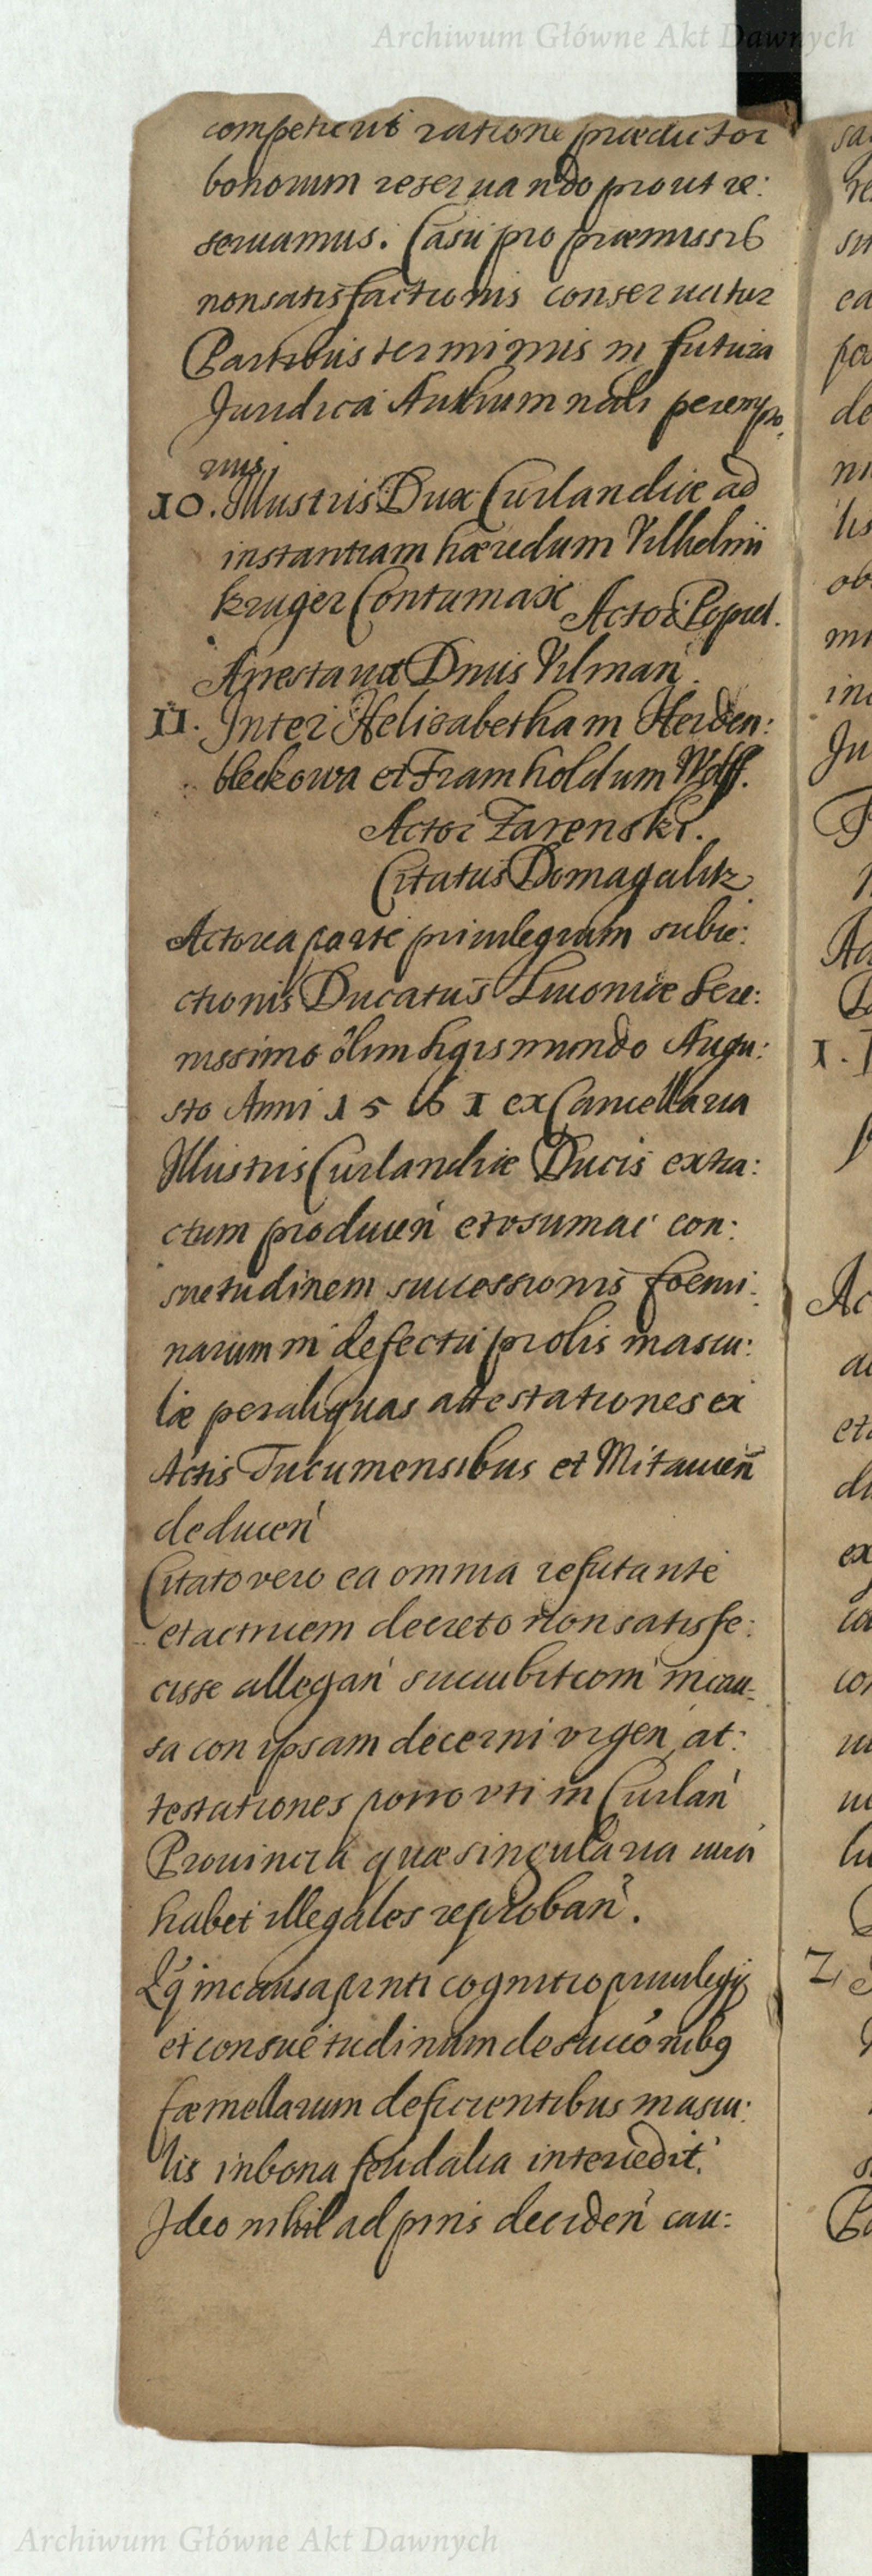 Archiwum Główne Akt Dawnych
competierit ratione prædictor
bonorum reseruando prout re:
seruamus. Casu pro præmissis
nonsatisfactionis conseruatur
Partibus terminus in futura
Juridica Authumnali peremp:
rius
10. Illustris Dux Curlandiæ ad
instantiam hæredum Vilhelmi
Kruger Contumax Actor Popiel.
Arrestauit Dnus Vilman.
11. Inter Helisabetham Herden:
bleckowa et Framholdum Wolff.
Actor Zarenski.
Citatus Domagalitz
Actorea parte priuilegium subie:
ctionis Ducatus Liuoniæ Sere:
nissimo olim Sigismundo Augu:
sto Anni 1561 ex Cancellaria
Illustris Curlandiæ Ducis extra:
ctum producen et
con:
suetudinem successionis foemi:
narum in defectu prolis mascu:
læ per aliquas attestationes ex
Actis Tucumensibus et Mitauien
deducen
Citato vero ea omnia refutante
et actricem decreto non satisfe:
cisse allegan
in cau:
sa con ipsam decerni vrgen, at:
testationes porro vti in Curlan
Prouincia quæ singularia iura
habet illegales reproban.
Qq in causa pnti cognitio priuilegij
et consuetudinum de succonibq
fæmellarum deficientibus mascu:
lis in bona feudalia intercedit.
Ideo nihil ad pns deciden cau:
Archiwum Główne Akt Dawnych